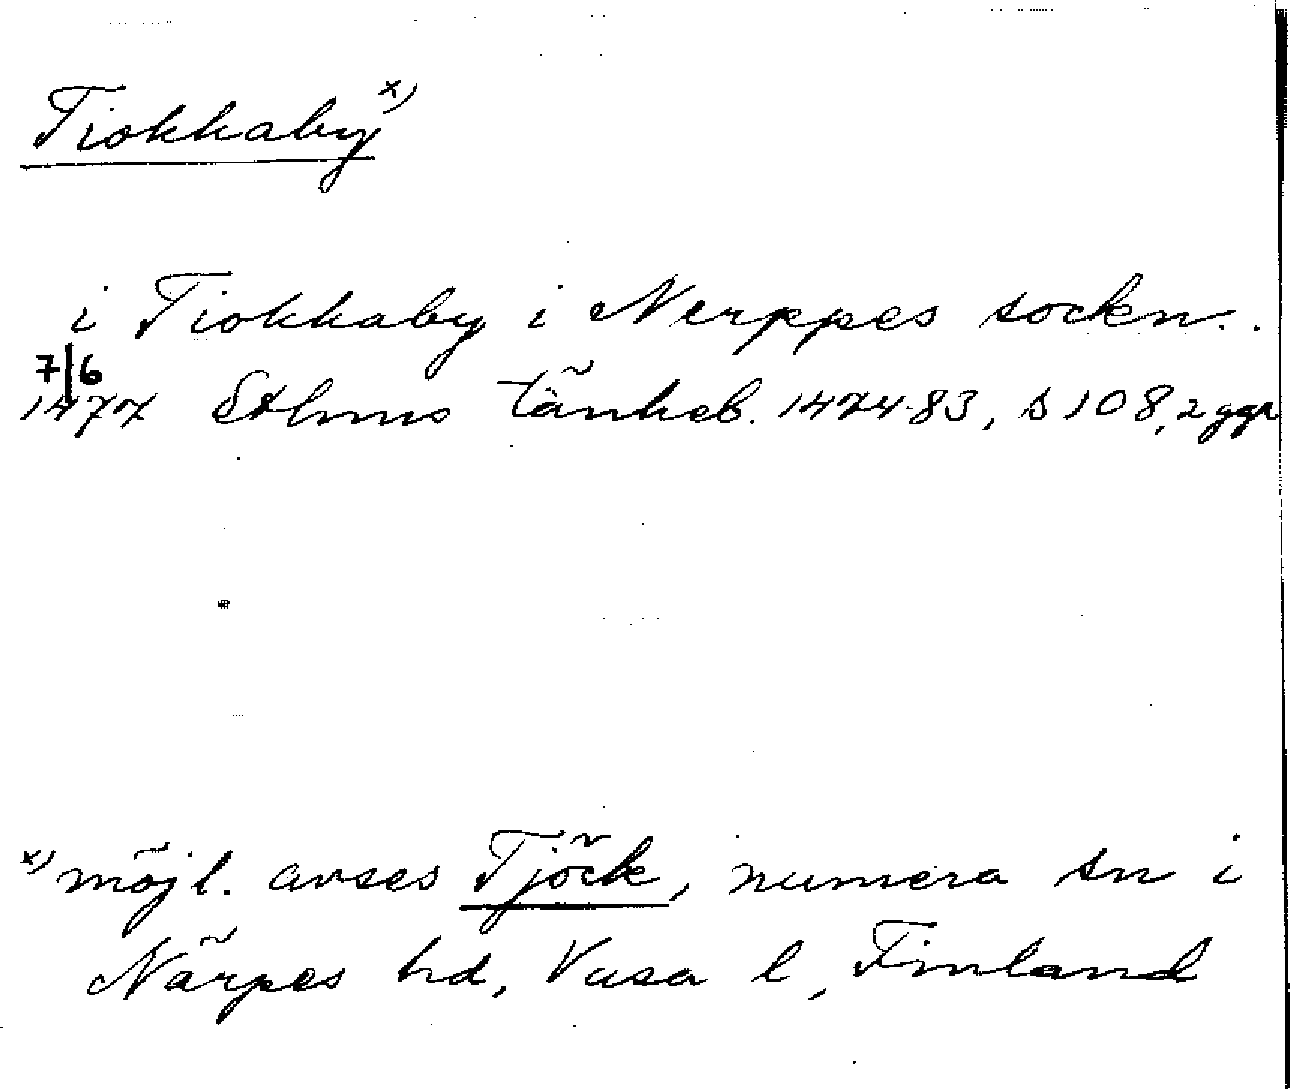 Tiokkaby x)
i Tiokkaby i Nerppes sockn..
7/6
1477 Sthms tänkeb. 1474-83, s 108, 2 ggr
x) möjl. avses Tjöck, numera sn i
Närpes hd, Vasa l, Finland